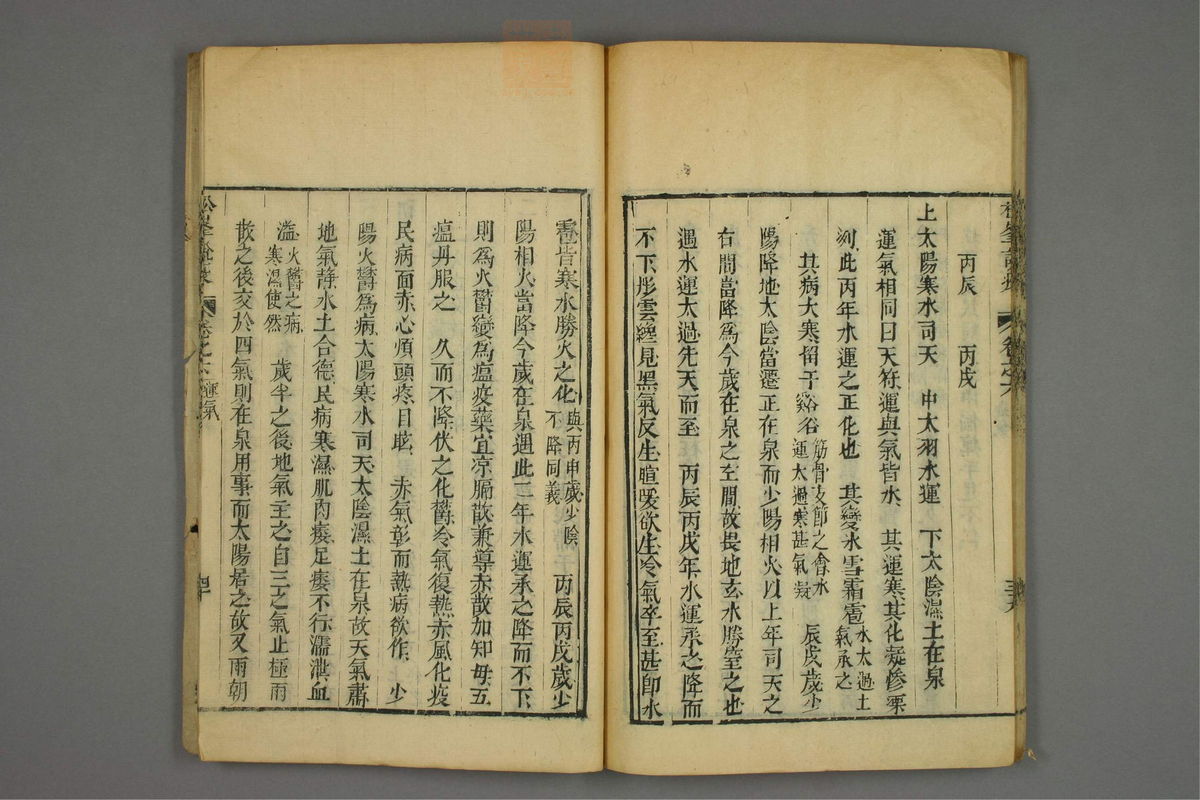 丙辰　丙戌
上太陽寒水司天　中太羽水運　下太陰濕土在泉
運氣相同曰天符運與氣皆水　其運寒其化凝慘凓
冽此丙年水運之正化也　其變氷雪霜雹水太過土氣承之
其病大寒留于谿谷筋骨支節之會水運太過寒甚氣凝　辰戌歲少
陽降地太陰當遷正在泉而少陽相火以上年司天之
右間當降爲今歲在泉之左間故畏地玄水勝窒之也
遇水運太過先天而至　丙辰丙戌年水運承之降而
不下彤雲纔見黑氣反生暄暖欲生冷氣卒至甚即水
雹皆寒水勝火之化與丙申歲少陰不降同義　丙辰丙戌歲少
陽相火當降今歲在泉遇此二年水運承之降而不下
則爲火鬱變爲瘟疫藥宜凉膈散兼導赤散加知母五
瘟丹服之　久而不降伏之化鬱冷氣復熱赤風化疫
民病面赤心煩頭疼目眩　赤氣彰而熱病欲作　少
陽火鬱爲病太陽寒水司天太陰濕土在泉故天氣肅
地氣静水土合德民病寒濕肌肉痿足痿不行濡泄血
溢火鬱之病寒濕使然　歲半之後地氣主之自三之氣止極雨
散之後交於四氣則在泉用事而太陽居之故又雨朝
卷之六　運氣